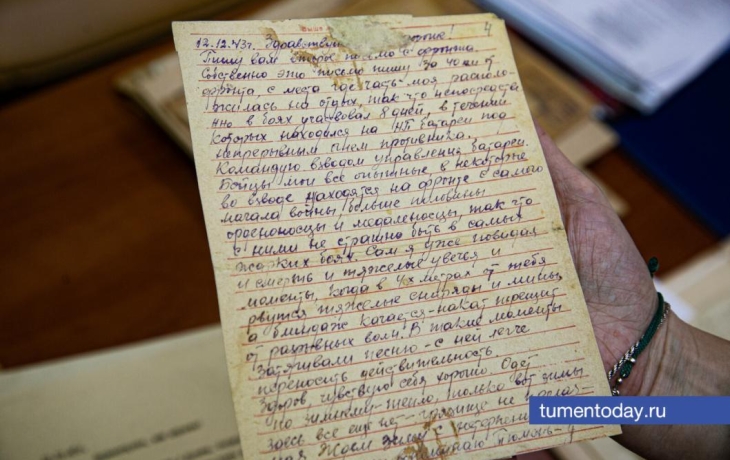 12.12.43г. Здравствуйте
4
Пишу вам второе письмо с фронта.
Собственно это письмо пишу за 40км от
фронта, с места где часть моя располо-
жилась на отдых, так что непосредстве
нно в боях участвовал 8 дней, в течении
которых находился на НП батареи под
непрерывным огнем противника.
Командую взводом управления батареи.
Бойцы мои все опытные, и некоторые
во взводе находятся на фронте с самого
начала войны, больше половины
орденоносцы и медаленосцы, так что
с ними не страшно быть в самых
жарких боях. Сам я уже повидал
и смерть и тяжелые увечья и
моменты, когда в 4х метрах от тебя
рвутся тяжелые снаряды и мины,
а блиндаж качается-накат трещит
от разрывных волн. В такие моменты
затягивали песню-с ней легче
переносить действительность.
Здоров, чувствую себя хорошо. Одет
по зимнему-тепло, только вот зимы
здесь все еще нет
ная. Ждем
Тюмень-
tumentoday.ru